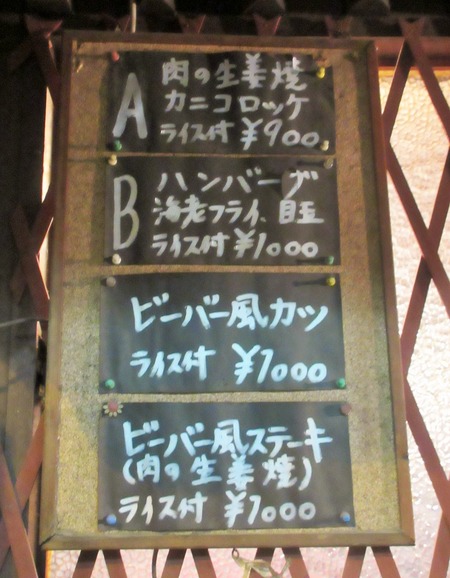 A
肉の生姜焼
カニコロッケ
ライス付 ¥900
B
ハンバーグ
海老フライ、目玉
ライス付 ¥1000
ビーバー風カツ
ライス付 ¥1000
ビーバー風ステーキ
(肉の生姜焼)
ライス付 ¥1000